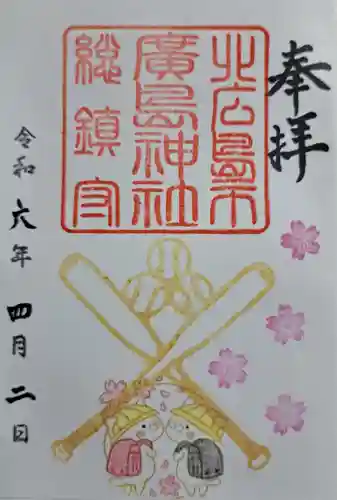 奉拝
北広島市
廣島神社
総鎮守
令和六年四月二日